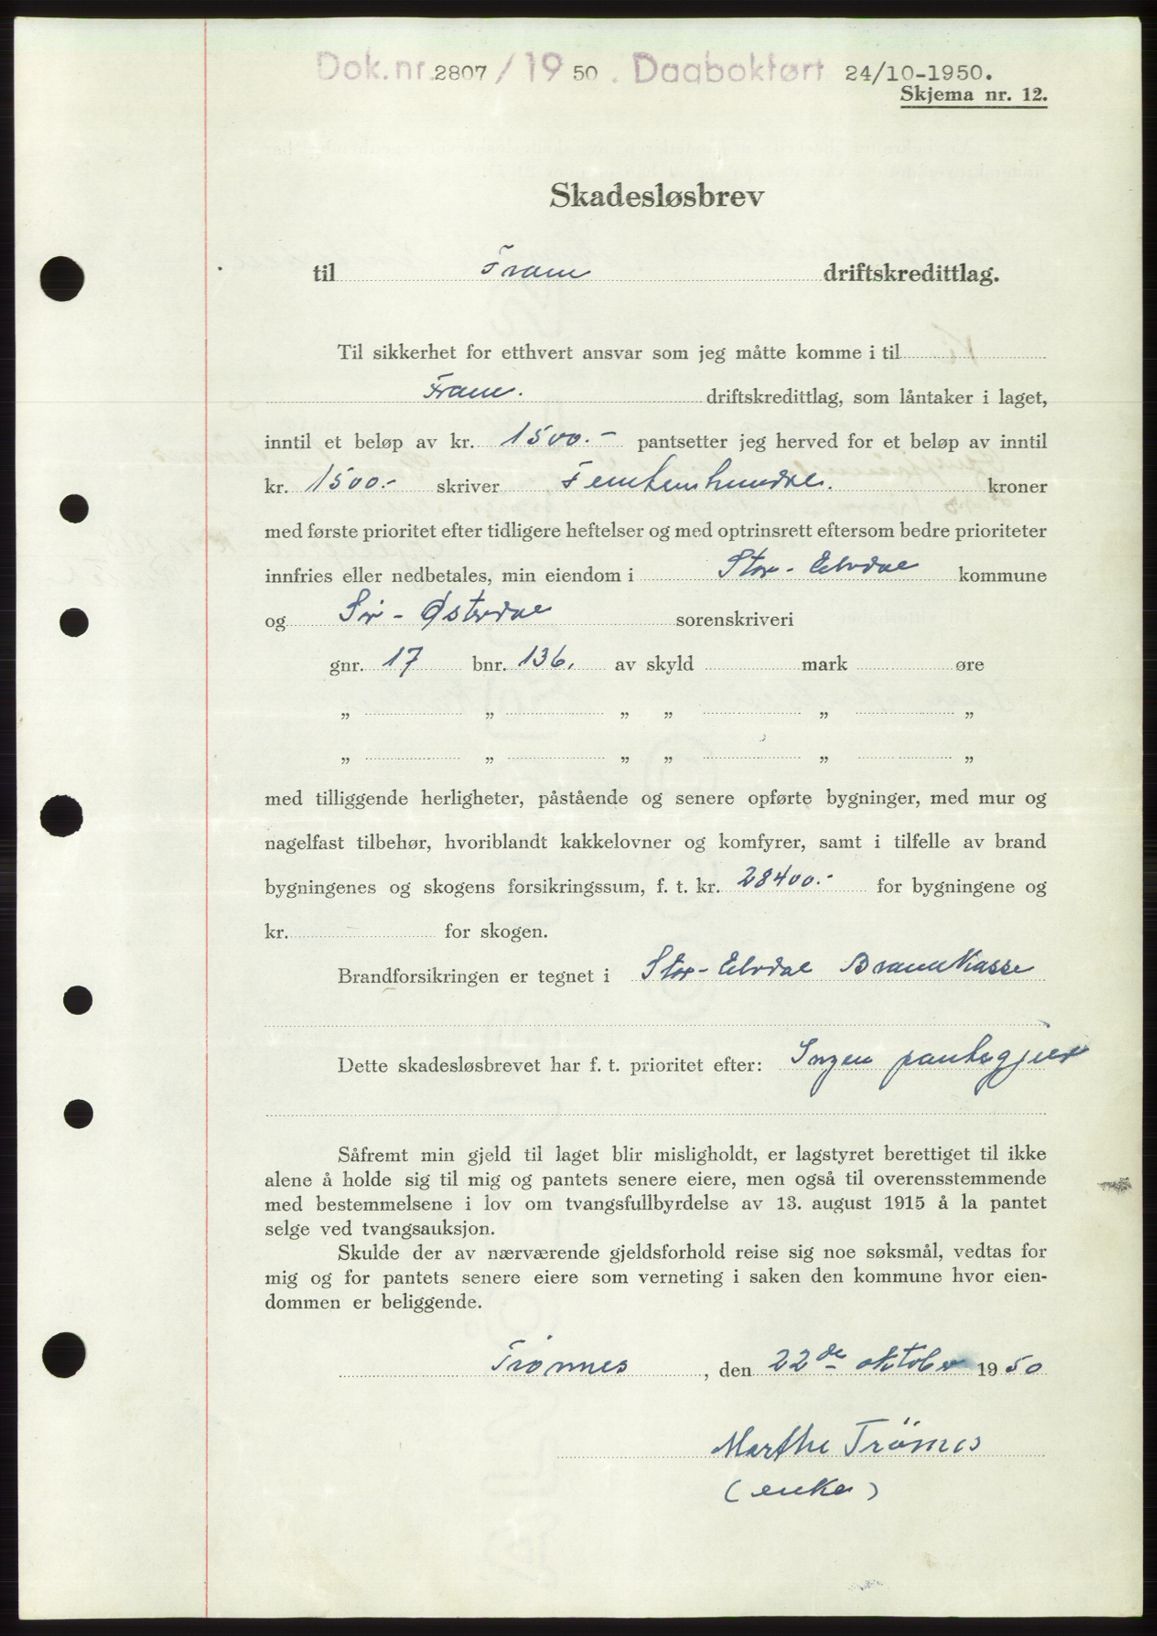 Dok.nr. 2807 / 19 50 . Dagbokført 24/10-1950.
Skjema nr. 12.
Skadesløsbrev
til Fram driftskredittlag.
Til sikkerhet for etthvert ansvar som jeg måtte komme i til
Fram. driftskredittlag, som låntaker i laget,
inntil et beløp av kr. 1500.- pantsetter jeg herved for et beløp av inntil
kr. 1500.- skriver Femtenhundre. kroner
med første prioritet efter tidligere heftelser og med optrinsrett eftersom bedre prioriteter
innfries eller nedbetales, min eiendom i Stor-Elvdal kommune
og Sør-Østerdal sorenskriveri
gnr. 17 bnr. 136. av skyld mark øre
„ „ „ „ „ „
„ „ „ „ „ „
med tilliggende herligheter, påstående og senere opførte bygninger, med mur og
nagelfast tilbehør, hvoriblandt kakkelovner og komfyrer, samt i tilfelle av brand
bygningenes og skogens forsikringssum, f. t. kr. 28400.- for bygningene og
kr. for skogen.
Brandforsikringen er tegnet i Stor-Elvdal Brannkasse
Dette skadesløsbrevet har f. t. prioritet efter: Ingen pantegjeld
Såfremt min gjeld til laget blir misligholdt, er lagstyret berettiget til ikke
alene å holde sig til mig og pantets senere eiere, men også til overensstemmende
med bestemmelsene i lov om tvangsfullbyrdelse av 13. august 1915 å la pantet
selge ved tvangsauksjon.
Skulde der av nærværende gjeldsforhold reise sig noe søksmål, vedtas for
mig og for pantets senere eiere som verneting i saken den kommune hvor eien-
dommen er beliggende.
Trønnes, den 22de oktober 1950
Marthe Trønnes
(enke)